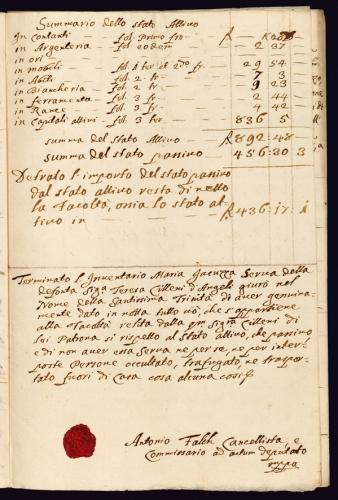 Summario dello stato Attivo
In contanti — fol. Primo fro — f
in Argenteria — fol. eodem — 2 37
in ori
in mobili — fol. 1 ter et 2do fr. — 29 54
in Abiti — fol. 2 tr — 7 3
in Biancheria — fol. 2 tr — 9 23
in ferramenta — fol. 3 fr. — 2 44
in Rame — fol. 3 fr — 4 42
in Capitali attivi — fol. 3 ter — 836 5
summa del stato Attivo — f 892-48-
summa del stato passivo — 456:30 3
Detrato l'importo del stato passivo
dal stato attivo resta di netto
la facoltà, ossia lo stato at-
tivo in — f 436:17:1
Terminato l'Inventario Maria Serva della
defonta Sigra Teresa Cilleni d'Angeli giurò nel
Nome della Santissima Trinità di aver genuina-
mente dato in notta tutto ciò, che s'appartiene
alla Facoltà relita dalla qm Sigra Cilleni di
lei Patrona si rispetto al Stato attivo, che passivo
e di non aver essa Serva ne per se, ne per inter-
poste Persone occultato, trafugato, ne traspor-
tato fuori di Casa cosa alcuna così
Antonio Cancellista e
Commissario ad actum deputato